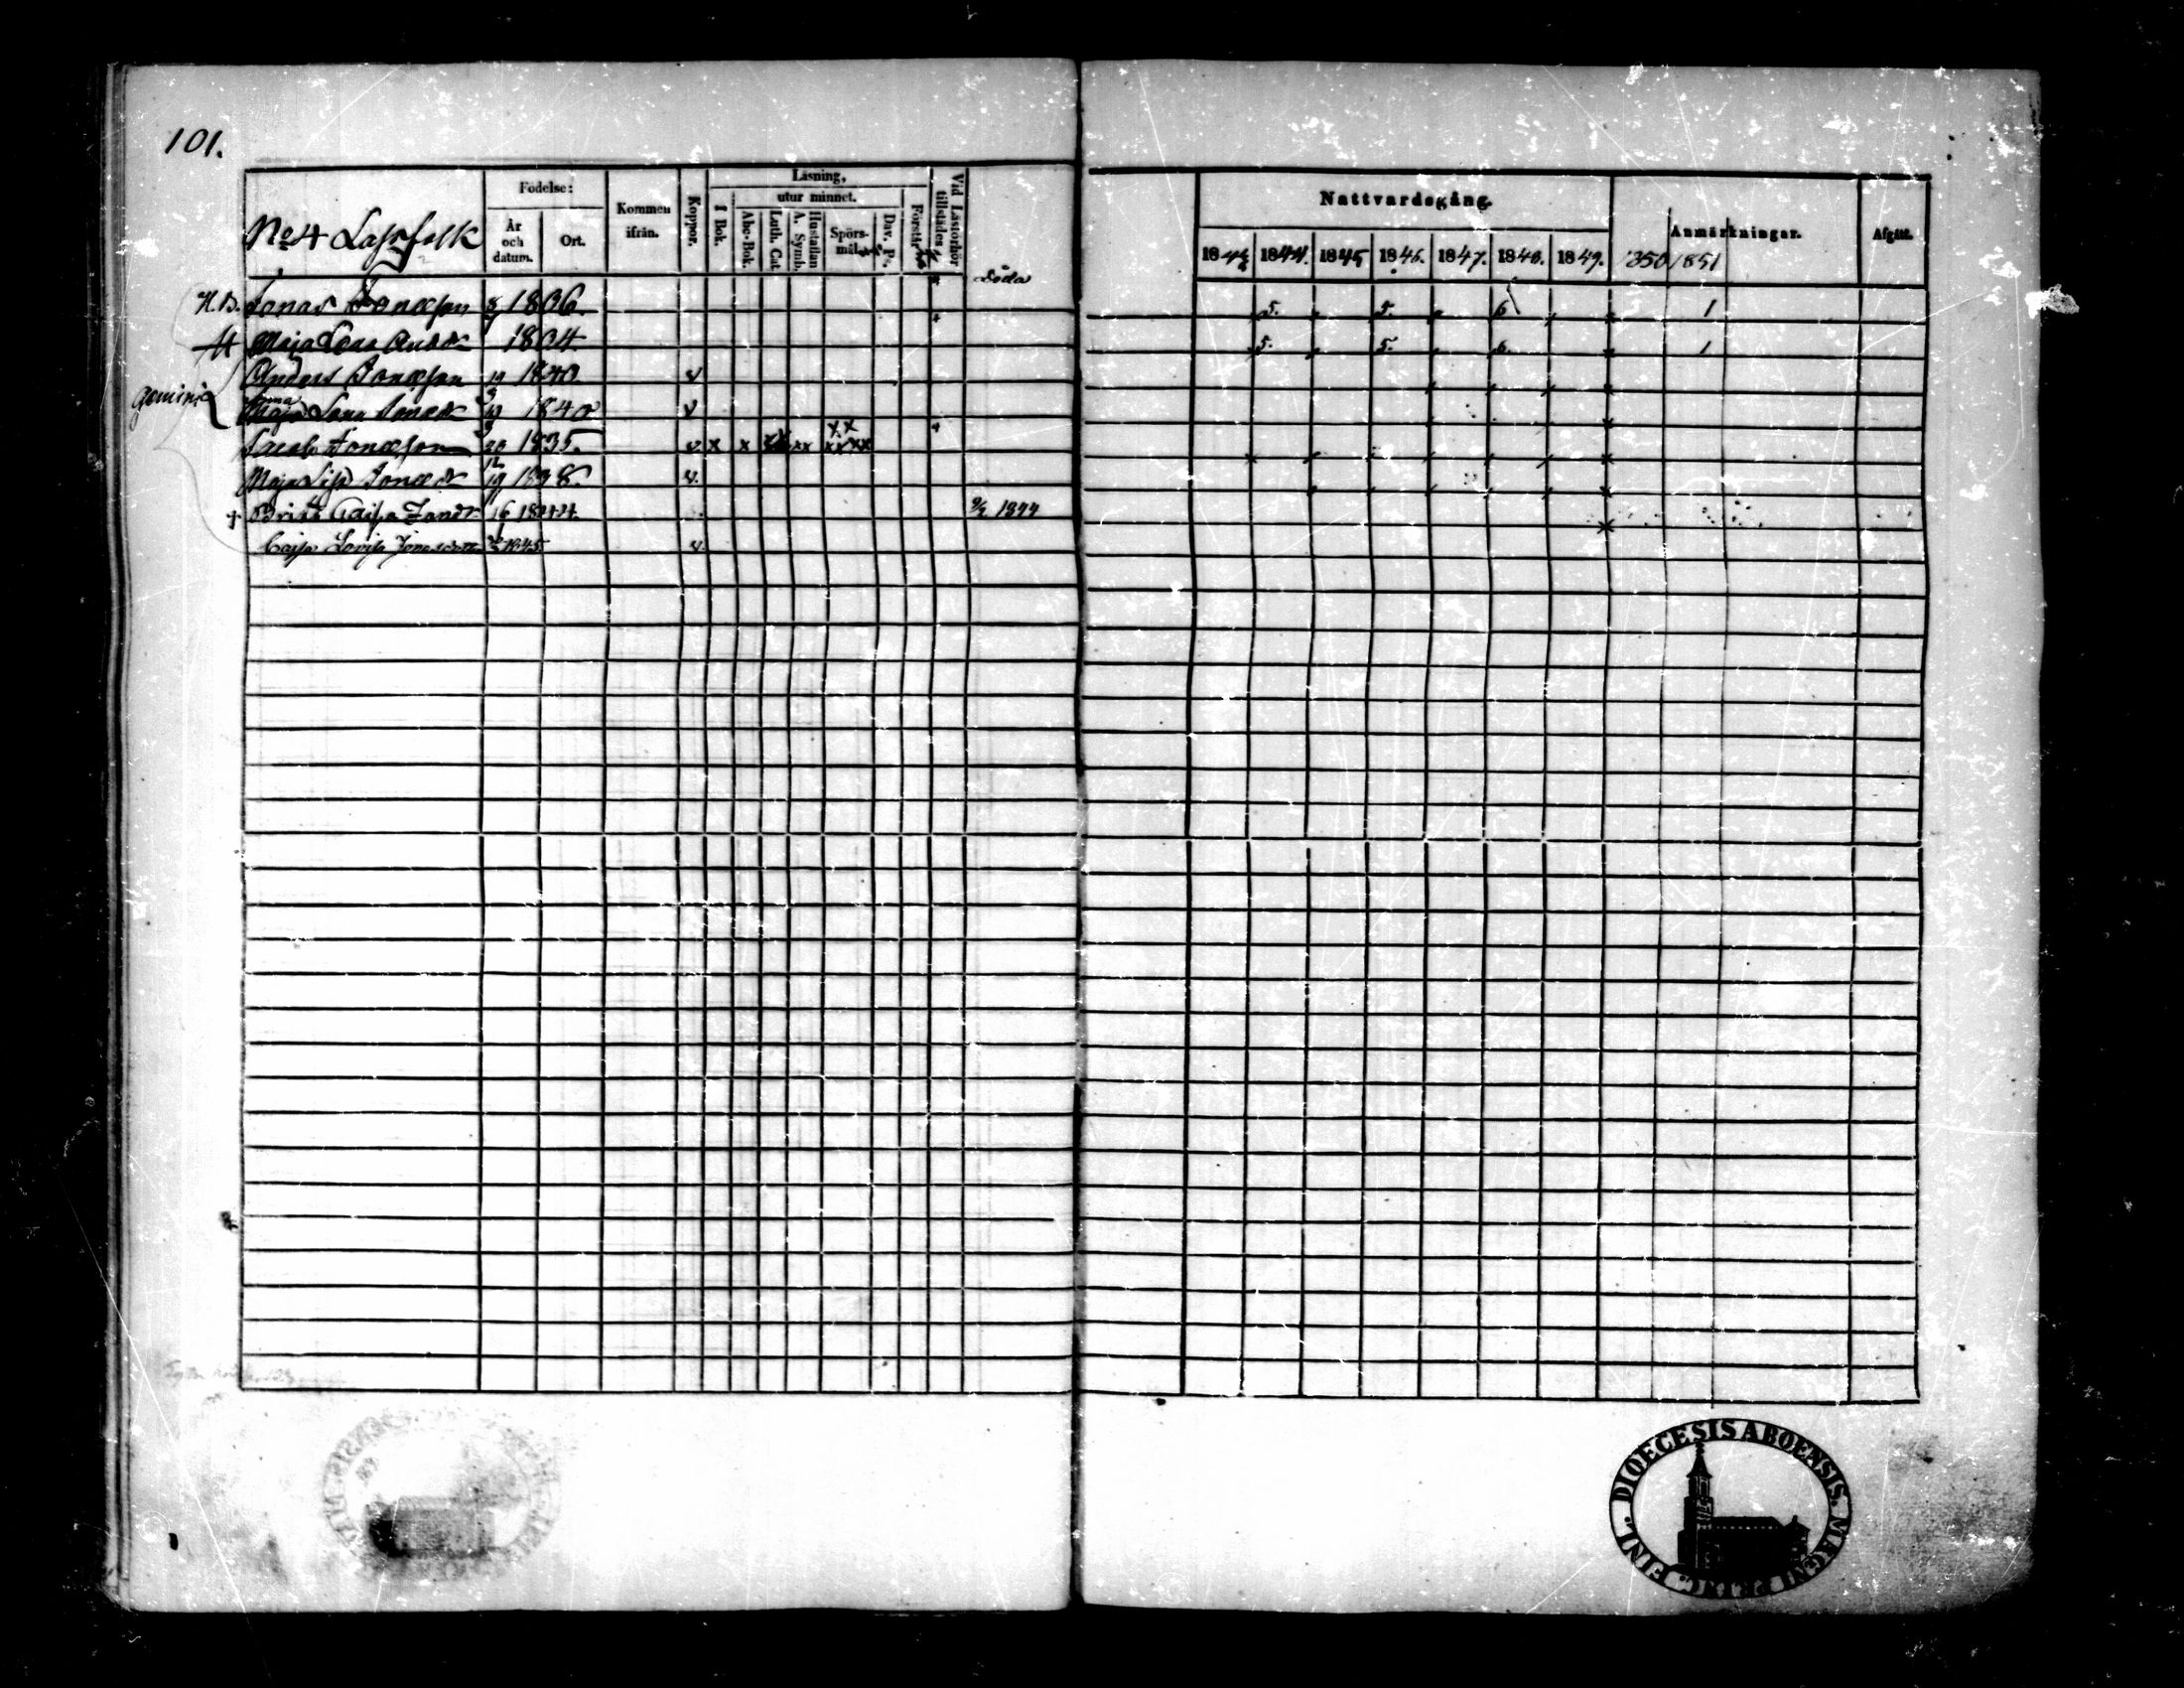 101.
No 4 Lassfolk
Födelse:
År och datum.
Ort.
Kommen ifrån.
Koppor.
Läsning,
I Bok.
utur minnet.
Abc-Bok.
Luth. Cat.
Hustaflan A. Symb.
Spörs-mål.
Dav. Ps.
Förstår
Vid Läsförhör tillstädes
Döda
Nattvardsgång.
1843 1844. 1845 1846. 1847. 1848. 1849.
Anmärkningar.
1850 1851
Afgått.
H.B. Jonas Jonasson 1806. 5. 5. 6 1
H Maja Lena 1804 5. 5. 6. 1
Gemini
Anders Jonasson 19 1840. v
Anna Lena 19/3 1840 v
Jacob Jonasson 20/12 1835. v x x xx xx
Maja Lisa 19 1838. v.
† Brita Caisa 16 1844. 9/2 1844
Cajsa Lovisa 1845. v.
FINL. DIOECESIS ABOENSIS. MAGNI PRINC.